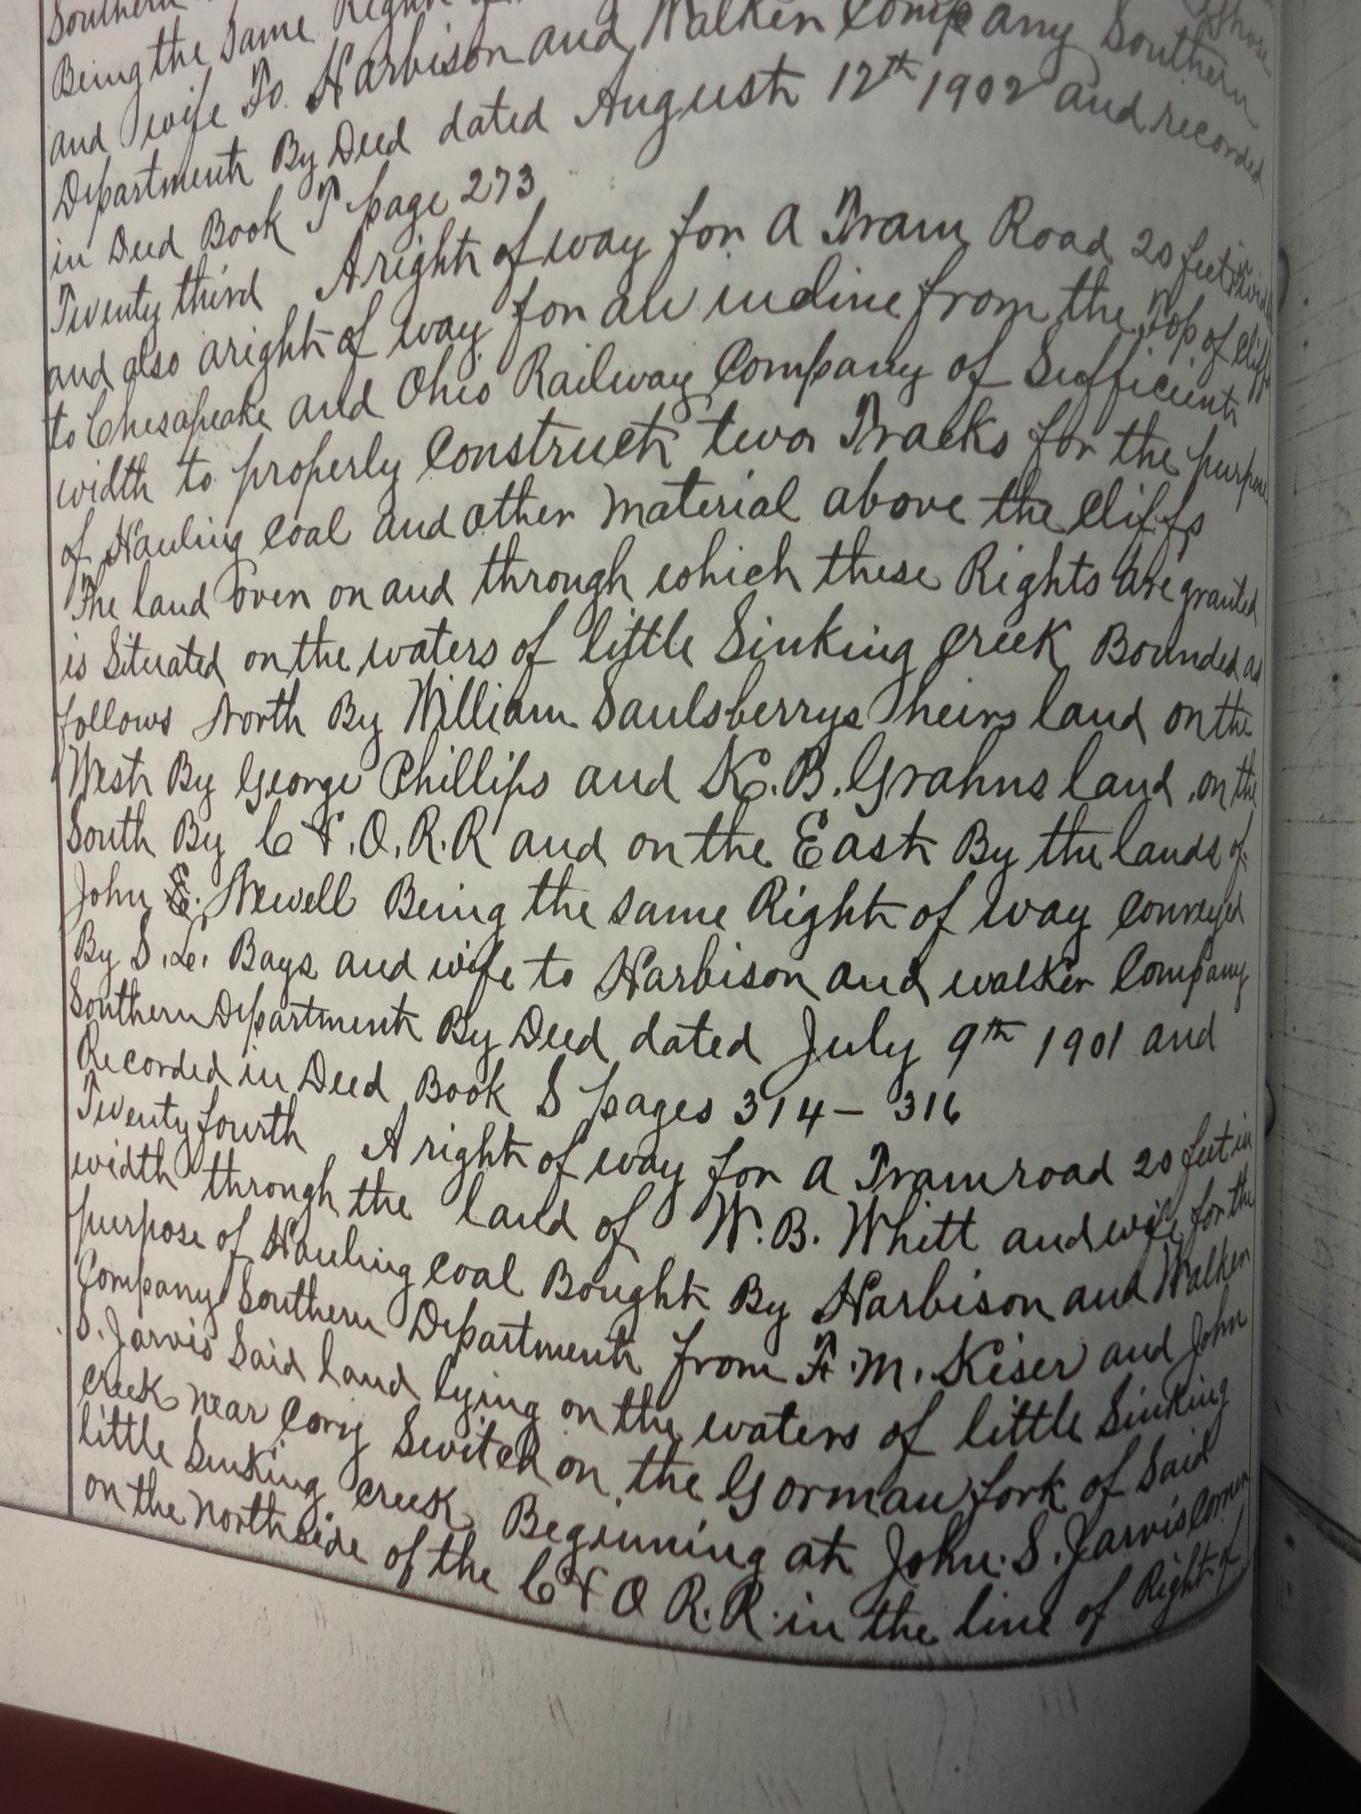 Southern
Being the Same Right of
and wife To Harbison and Walker Company Southern
Department By Deed dated August 12th 1902 and recorded
in Deed Book T page 273
Twenty third A right of way for A Tram Road 20 feet wide
and also a right of way for an incline from the Top of Cliffs
to Chesapeake and Ohio Railway Company of Sufficient
width to properly Construct two Tracks for the purpose
of Hauling Coal and other material above the Cliffs
The land over on and through which these Rights are granted
is Situated on the waters of little Sinking Creek Bounded as
follows North By William Saulsberrys heirs land on the
West By George Phillips and K. B. Grahns land, on the
South By C & O. R. R and on the East By the lands of
John E. Newell Being the same Right of way conveyed
By S. L. Bays and wife to Harbison and walker Company
Southern Department By Deed dated July 9th 1901 and
Recorded in Deed Book S pages 314 – 316
Twenty fourth A right of way for A Tram road 20 feet in
width through the land of W. B. Whitt and wife for the
purpose of Hauling Coal Bought By Harbison and Walker
Company Southern Department from F. M. Kiser and John
S. Jarvis Said land lying on the waters of little Sinking
Creek near Cory Switch on the Gorman fork of Said
little Sinking Creek Beginning at John. S. Jarvis Corner
on the north side of the C & O R. R. in the line of Right of